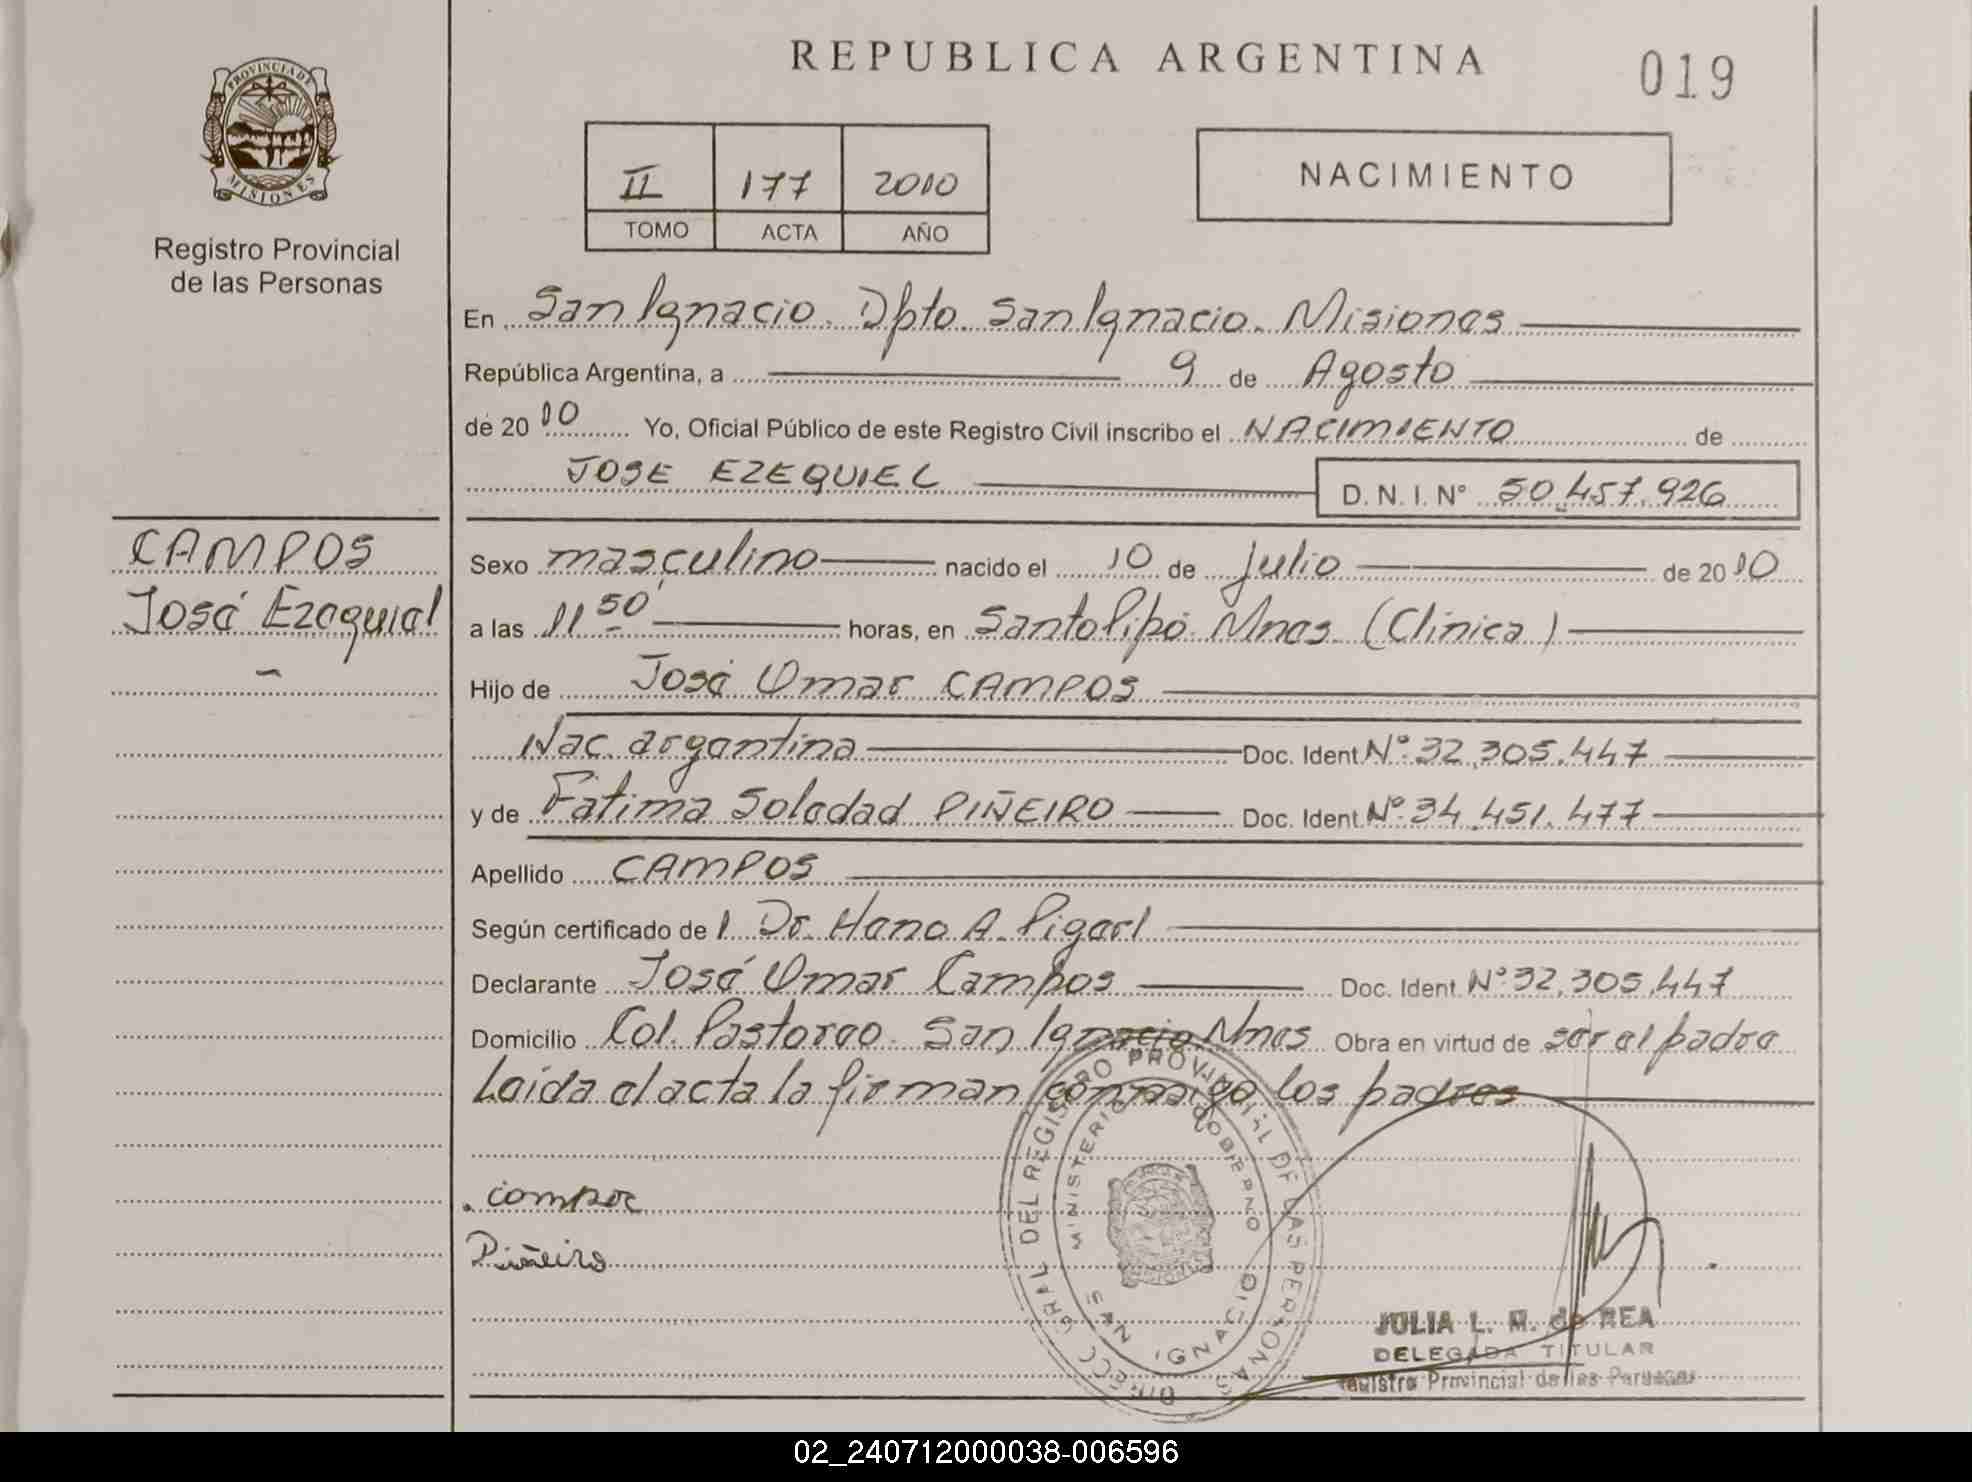 REPUBLICA ARGENTINA
019
PROVINCIA DE
MISIONES
Registro Provincial
de las Personas
II 177 2010
TOMO ACTA AÑO
NACIMIENTO
En San Ignacio. Dpto. San Ignacio. Misiones
República Argentina, a 9 de Agosto
de 2010 Yo, Oficial Público de este Registro Civil inscribo el NACIMIENTO de
JOSE EZEQUIEL D. N. I. N° 50.457.926
CAMPOS
José Ezequiel
Sexo masculino nacido el 10 de julio de 2010
a las 11 50 horas, en Santo Pipó. Mnes. (Clinica)
Hijo de José Omar CAMPOS
Nac. argentina Doc. Ident. N° 32.305.447
y de Fatima Soledad PIÑEIRO Doc. Ident. N° 34.451.477
Apellido CAMPOS
Según certificado del Dr. A.
Declarante José Omar Campos Doc. Ident. N° 32.305.447
Domicilio Col. Pastoreo. San Ignacio Mnes Obra en virtud de ser el padre
Leida el acta la firman conmigo los padres
Piñeiro
DIRECC. GRAL. DEL REGISTRO PROVINCIAL DE LAS PERSONAS
MINISTERIO DE GOBIERNO
SAN IGNACIO
MISIONES
JULIA L. M. de REA
DELEGADA TITULAR
Registro Provincial de las Personas
02_240712000038-006596